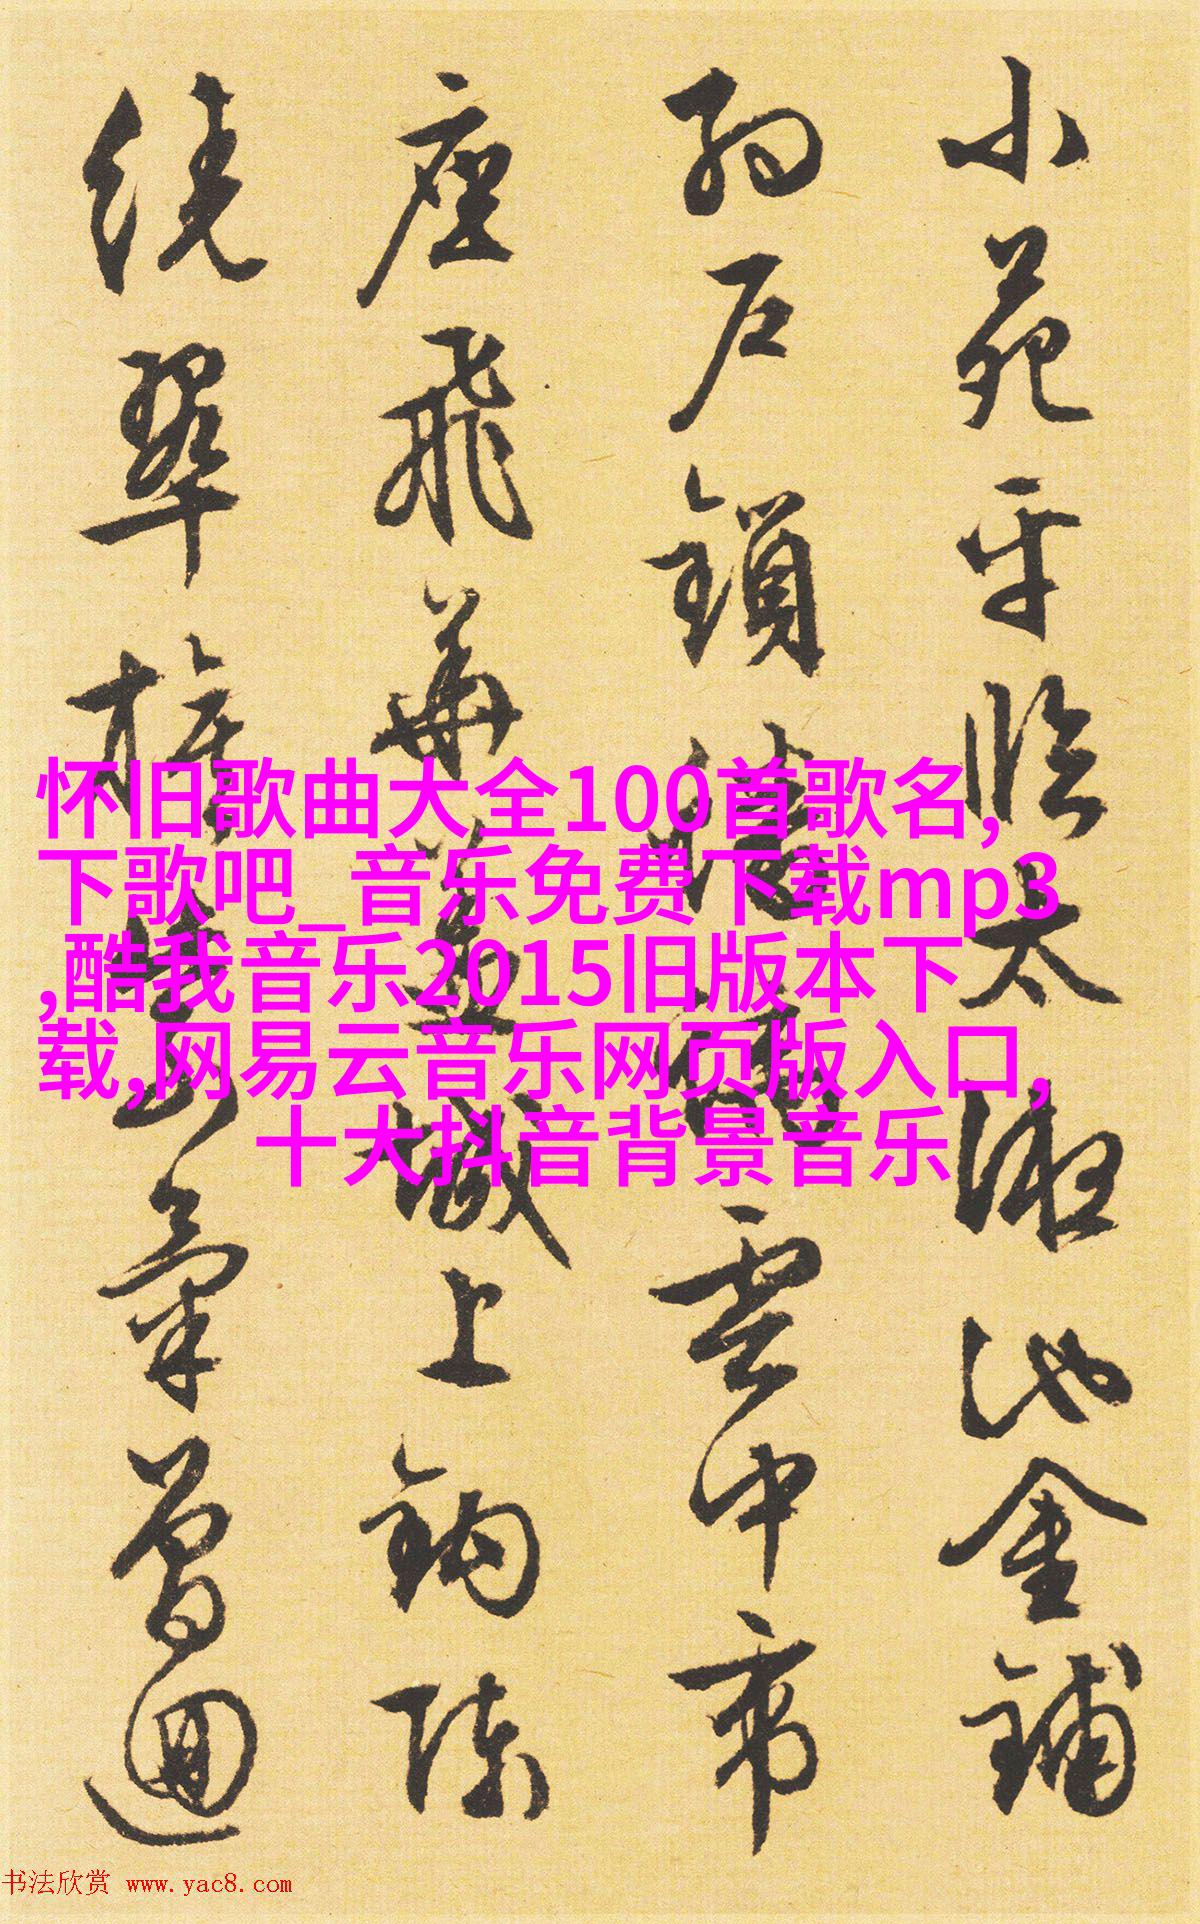 小苑平临太液池金铺
约户锁蟠螭云中帝
座飞华盖城上钩陈
绕翠旗山气曾迴
怀旧歌曲大全100首歌名,
下歌吧_音乐免费下载mp3
,酷我音乐2015旧版本下
载,网易云音乐网页版入口,
十大抖音背景音乐
书法欣赏 www.yac8.com